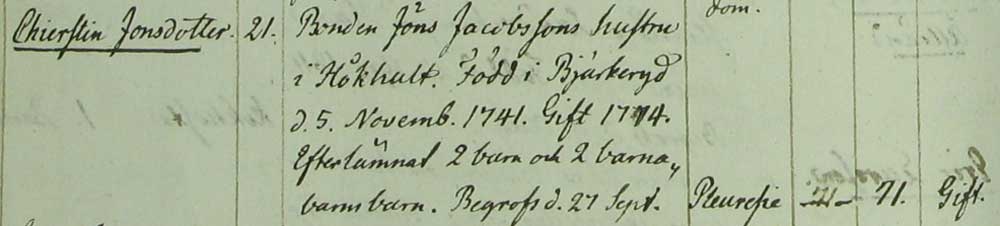 dom.
Chierstin Jonsdotter. 21. Bonden Jöns Jacobssons hustru
i Hökhult. Född i Bjärkeryd
d. 5. Novemb. 1741. Gift 1774.
Efterlämnat 2 barn och 2 barna„
barns barn. Begrofs d. 27 Sept. Pleuresie 71 71. Gift.